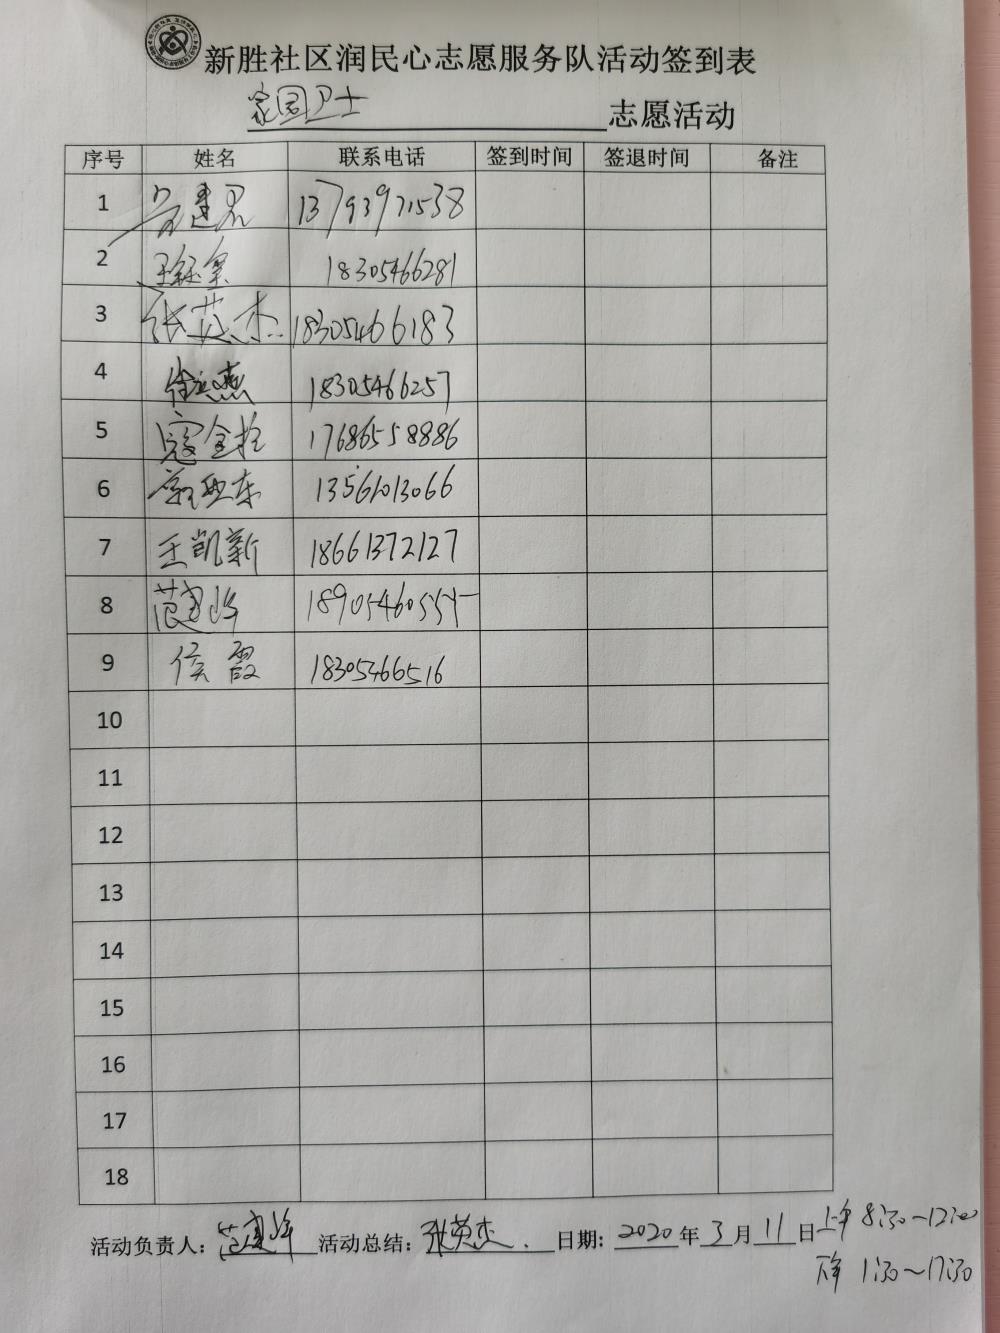 新胜社区润民心志愿服务队活动签到表
家园卫士 志愿活动
序号 姓名 联系电话 签到时间 签退时间 备注
1 建 13793971538
2 王 18305466281
3 张英杰 18305466183
4 18305466257
5 寇金 17686558886
6 东 13561013066
7 王凯新 18661372127
8 范建峰 18905460555
9 侯霞 18305466516
10
11
12
13
14
15
16
17
18
活动负责人: 范建峰 活动总结: 张英杰. 日期: 2020 年 3 月 11 日 上午 8:30~12:00
下午 1:30~17:30